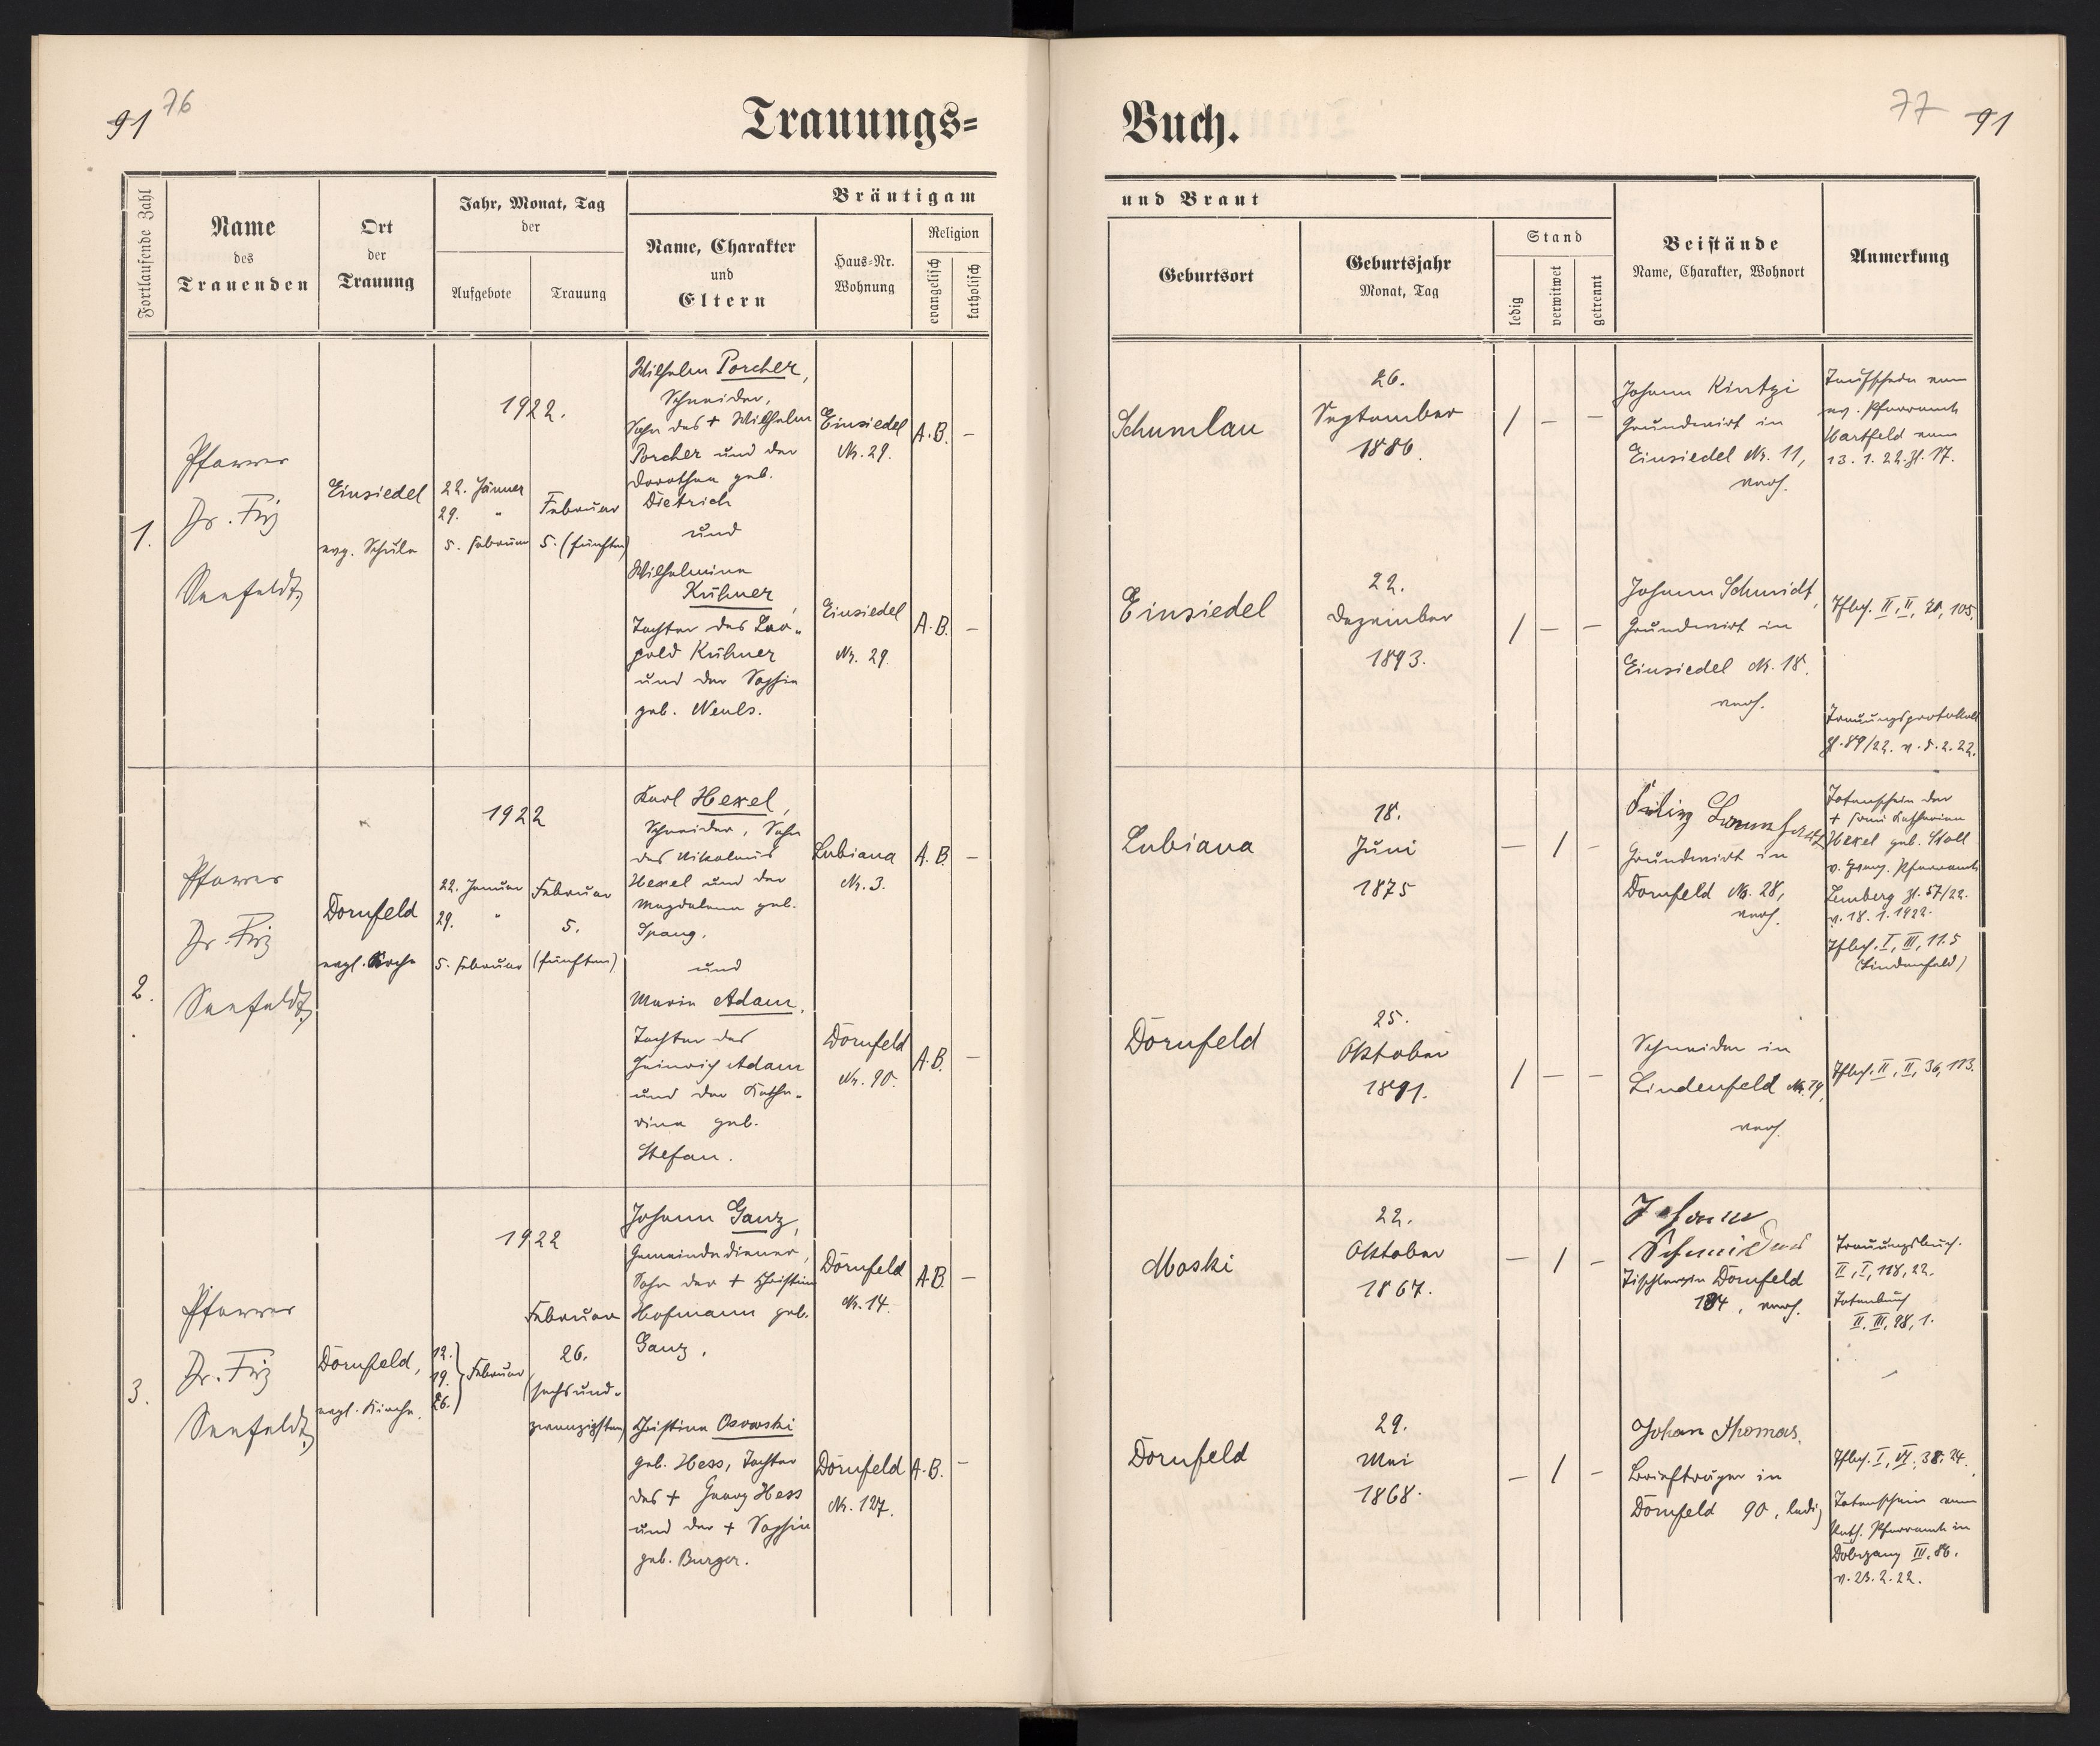 91 76
Trauungs=
Buch.
77 91
Fortlaufende Zahl
Name
des
Trauenden
Ort
der
Trauung
Jahr, Monat, Tag
der
Aufgebote
Trauung
Bräutigam
Name, Charakter
und
Eltern
Haus=Nr.
Wohnung
Religion
evangelisch
katholisch
und Braut
Geburtsort
Geburtsjahr
Monat, Tag
Stand
ledig
verwitwet
getrennt
Beistände
Name, Charakter, Wohnort
Anmerkung
1.
Pfarrer
Dr. Fritz
Seefeldt
Einsiedel
evg. Schule
1922.
22. Jänner
29. "
5. Februar
Februar
5. (fünften)
Wilhelm Porcher,
Schneider,
Sohn des + Wilhelm
Porcher und der
Dorothea geb.
Dietrich
und
Wilhelmine
Kühner,
Tochter des Leo-
pold Kühner
und der Sophie
geb. Neuls.
Einsiedel
Nr. 29.
A.B. –
Einsiedel
Nr. 29.
A.B. –
Schumlau
26.
September
1886.
/ – –
Johann Kintzi
Grundwirt in
Einsiedel Nr. 11,
verh.
Taufschein vom
ev. Pfarramt
Hartfeld vom
13. 1. 22. Zl. 17.
Einsiedel
22.
Dezember
1893.
/ – –
Johann Schmidt,
Grundwirt in
Einsiedel Nr. 18.
verh.
Tfbch. II, II, 105.
Trauungsprotokoll
Zl. 89/22. v. 5. 2. 22.
2.
Pfarrer
Dr. Fritz
Seefeldt
Dornfeld
evgl. Kirche
1922
22. Januar
29. "
5. Februar
Februar
5.
(fünften)
Karl Hexel,
Schneider, Sohn
des Nikolaus
Hexel und der
Magdalena geb.
Spang.
und
Maria Adam,
Tochter des
Heinrich Adam
und der Katha-
rina geb.
Stefan.
Lubiana
Nr. 3.
A.B. –
Dornfeld
Nr. 90.
A.B. –
Lubiana
18.
Juni
1875
– / –
Grundwirt in
Dornfeld Nr. 28,
verh.
Totenschein der
+ Katharina
Hexel geb. Stoll
v. evang. Pfarramt
Lemberg Zl. 57/22.
v. 18. 1. 1922.
Tfbch. I, III, 11. 5
(Lindenfeld)
Dornfeld
25.
Oktober
1891.
/ – –
Schneider in
Lindenfeld Nr.
verh.
Tfbch. II, II, 36, 113.
3.
Pfarrer
Dr. Fritz
Seefeldt
Dornfeld,
evgl. Kirche.
1922
12.
19. } Februar
26.
Februar
26.
(sechsund-
zwanzigsten)
Johann Ganz,
Gemeindediener,
Sohn der + Christine
Hofmann geb.
Ganz.
Christine Osowski
geb. Hess, Tochter
des + Georg Hess
und der + Sophie
geb. Burger.
Dornfeld
Nr. 14.
A.B. –
Dornfeld
Nr. 127.
A.B. –
Moski
22.
Oktober
1867.
– / –
Johann
Tischler in Dornfeld
verh.
Trauungsbuch
II, I, 118, 22.
Totenbuch
II, III, 98, 1.
Dornfeld
29.
Mai
1868.
– / –
Johan Thomas.
Briefträger in
Dornfeld 90, ledig
Tfbch. I, VI, 38. 24.
Totenschein vom
kath. Pfarramt in
III, 86.
v. 23. 2. 22.